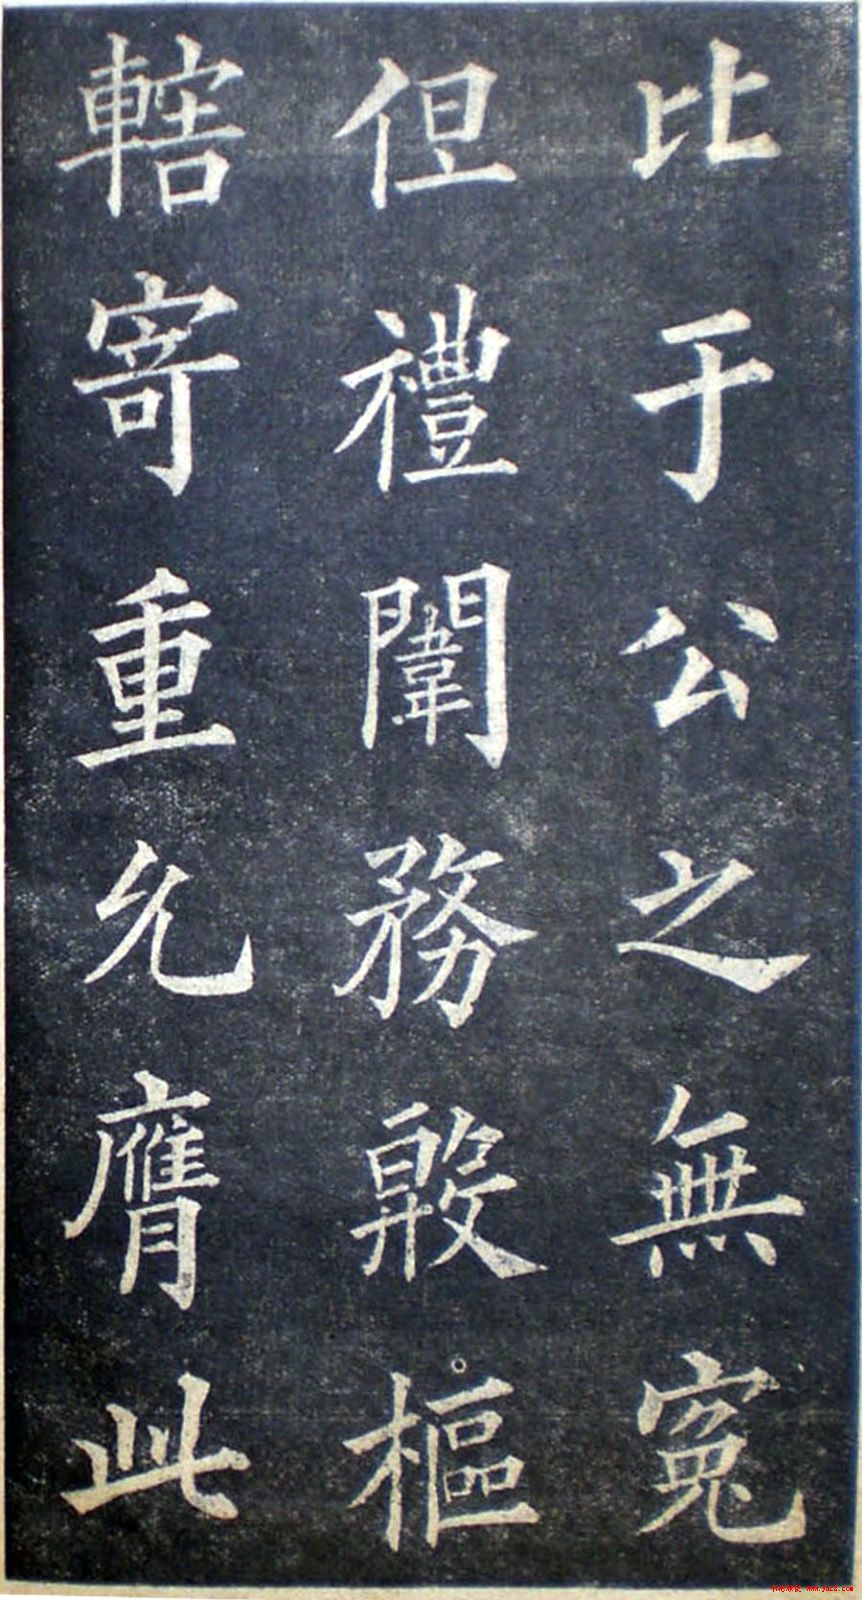 比于公之無冤
但禮闈務殷樞
轄寄重允膺此
www.yac8.com